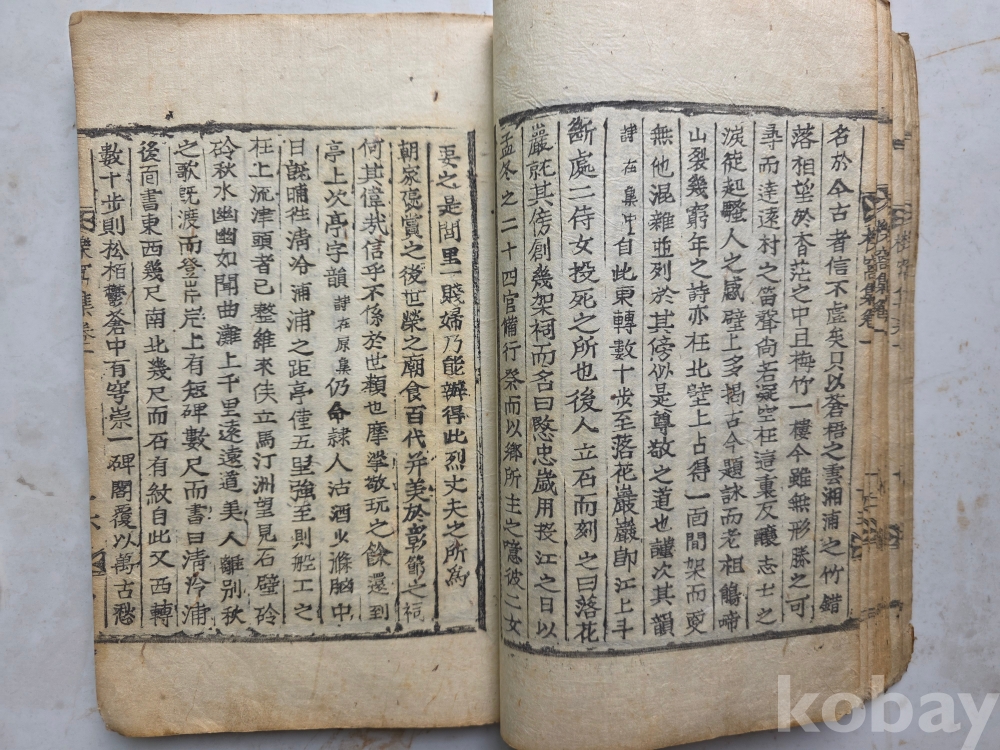 名於今古者信不虛矣只以蒼梧之雲湘浦之竹錯
落相望於杳茫之中且梅竹一樓今雖無形勝之可
尋而逵遠村之笛聲尚若凝空在這裏反釀志士之
淚徒起騷人之感壁上多揭古今題詠而老祖鵑啼
山裂幾窮年之詩亦在北壁上占得一面間架而更
無他混雜並列於其傍似是尊敬之道也謹次其韻
詩在集中 自此東轉數十步至落花巖巖卽江上斗
斷處二侍女投死之所也後人立石而刻之曰落花
巖就其傍創幾架祠而名曰愍忠歲用投江之日以
孟冬之二十四官備行祭而以鄉所主之噫彼二女
要之是閭里一賤婦乃能辦得此烈丈夫之所爲
朝家褒賞之後世榮之廟食百代幷美於彰節之祠
何其偉哉信乎不係於世類也摩挲敬玩之餘還到
亭上次亭字韻 詩在原集 仍命隷人沽酒少滌腦中
日旣晡徃淸泠浦浦之距亭僅五里強至則舡工之
在上流津頭者已整維來俟立馬汀洲望見石壁砱
砱秋水幽幽如聞曲灘上千里遠遠道美人離別秋
之歌旣渡而登岸岸上有短碑數尺而書曰淸泠浦
後面書東西幾尺南北幾尺而石有紋自此又西轉
數十步則松栢鬱蒼中有穹崇一碑閣覆以萬古愁
樂窩集卷一
kobay